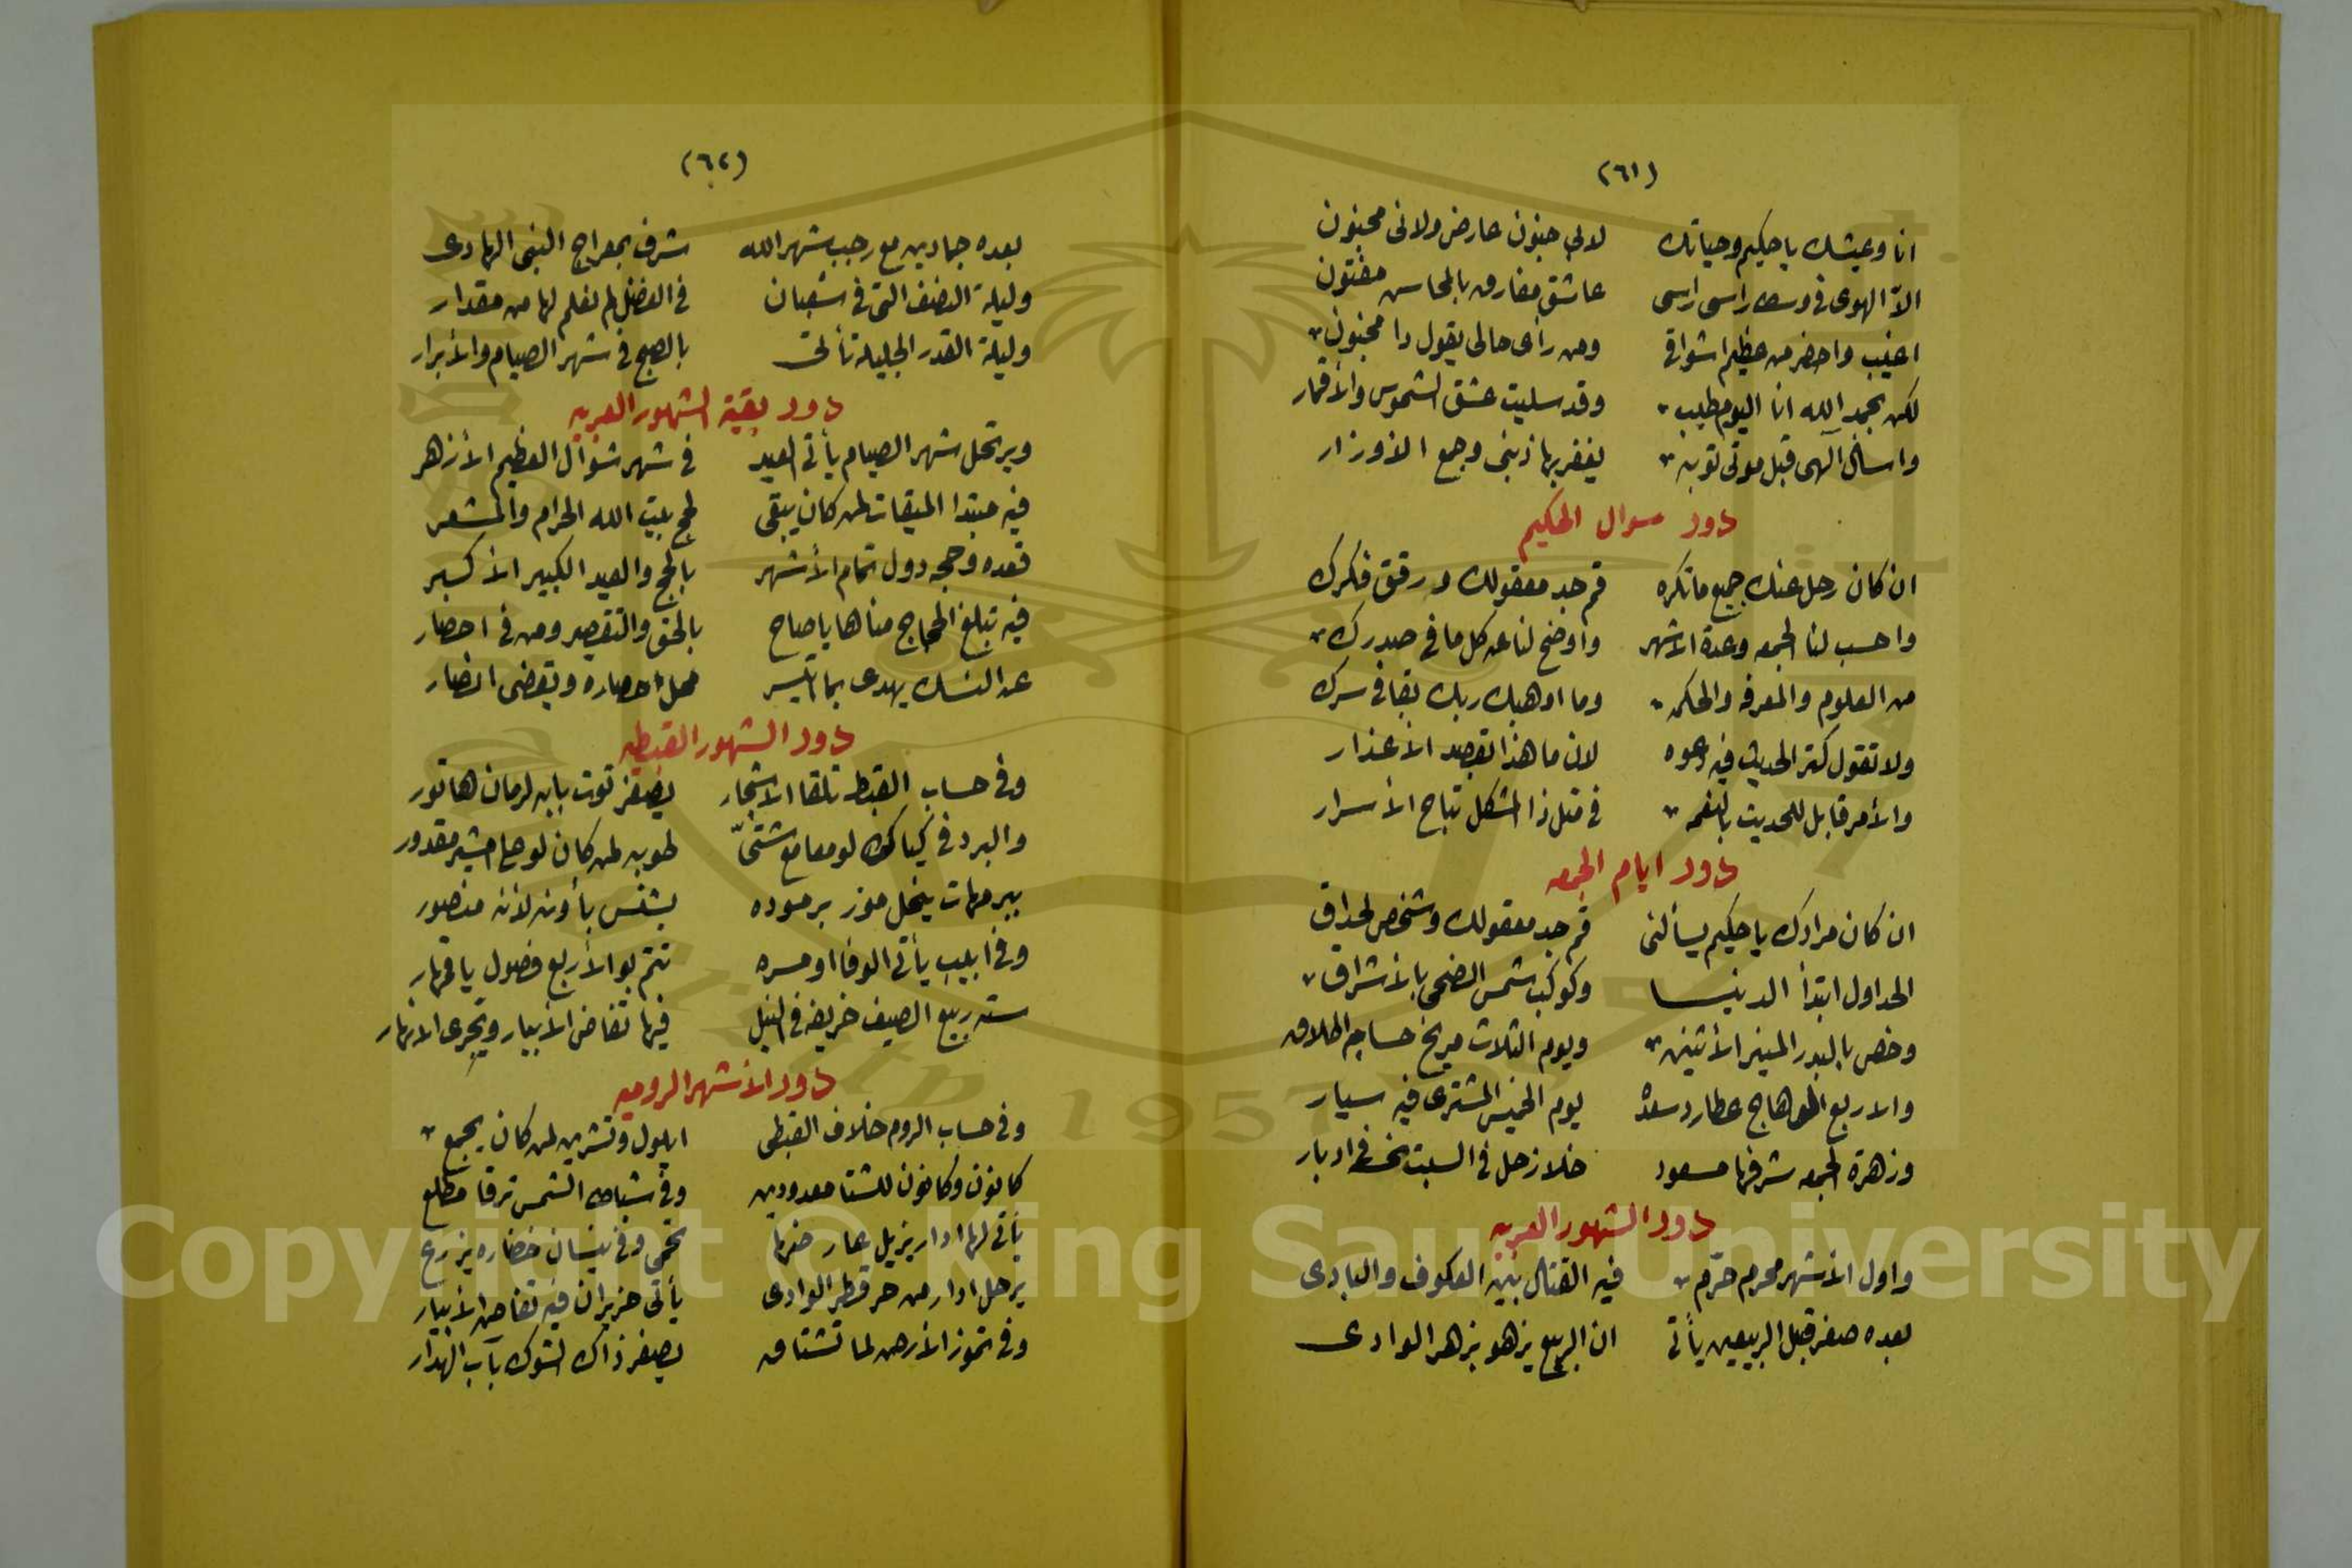 (٦١)
انا وعيشك ياحكيم وحياتك لابي جنون عارض ولاني مجنون
الا الهوى في وسط راسي راسي عاشق مفارق بالمحاسن مفتون
اغيب واحضر من عظيم اشواقي ومن رأى حالي يقول دا مجنون
لكن بحمد الله انا اليوم طيب وقد سليت عشق الشموس والأقمار
واسأل الهي قبل موتي توبه يغفر بها ذنبي وجمع الاوزار
دور سوال الحكيم
ان كان رحل عنك جميع ماتكره قم جد معقولك ورقق فكرك
واحسب لنا الجمعه وعدة الاشهر واوضح لنا عن كل ما في صدرك
من العلوم والمعرفه والحكمه وما اوهبك ربك بقا في سرك
ولا تقول كتر الحديث فيه دعوه لان ما هذا تقصد الأعذار
والأمر قابل للحديث بالنغمه في متل ذا المشكل تباح الأسرار
دور ايام الجمعه
ان كان مرادك ياحكيم يسألني قم جد معقولك وشخص لحداق
الحد اول ابتدأ الدنيا وكوكب شمس الضحى بالأشراق
وخص بالبدر المنير الأثنين ويوم الثلاث مريخ حسابه اطلاق
والاربع الوهاج عطارد سعده يوم الخميس المشترى فيه سيار
وزهرة الجمعه شرفها مسعود خلا زحل في السبت نحسه في ادبار
دور الشهور العربيه
واول الأشهر محرم حرّم فيه القتال بين العكوف والبادى
بعده صفر قبل الربيعين يأتي ان الربيع يزهو بزهر الوادى
(٦٢)
بعده جمادين مع رجب شهر الله شرف بمعراج النبى الهادى
وليلة النصف التي في شعبان في الفضل لم نعلم لها من مقدار
وليلة القدر الجليله تأتي بالصبح في شهر الصيام والأبرار
دور بقية الشهور العربيه
ويرتحل شهر الصيام يأتي العيد في شهر شوال العظيم الأزهر
فيه مبتدا الميقات لمن كان يبقى لحج بيت الله الحرام والمشعر
قعده وحجه دول تمام الأشهر بالحج والعيد الكبير الأكبر
فيه تبلغ الحجاج مناها ياصاح بالحق والتقصير ومن في احصار
عن النسك يهدى بما اتيسر محل احصاره وتقضى انضار
دور الشهور القبطيه
وفي حساب القبط تلقا الاشجار يصفر توت بابه لرمان هاتور
والبرد في كياكك لو معامع شتىّ طوبه لمن كان لو على امشير مقدور
ببرمهات ينحل موز برموده بشنس بأونه لأنه منصور
وفي أبيب يأتي الوفا او مسره تتم بو الأربع فصول ياقمار
سته ربيع الصيف خريفه في النيل فيها تفاض الأبيار وتجرى الانهار
دور الأشهر الروميه
وفي حساب الروم خلاف القبطى ايلول وتشرين لمن كان يجمع
كانون وكانون للشتا معدودين وفي شباط الشمس ترقا مطلع
يأتي لها ادار يزيل عار ضرها تحمى وفي نيسان خضاره يزرع
يرحل ادار من حر قطر الوادى يأتى حزيران فيه تفاض الأبيار
وفي تموز الأرض لما تشتاق يصفر ذاك الشوك بآب الهدار
Copyright © King Saud University
1957